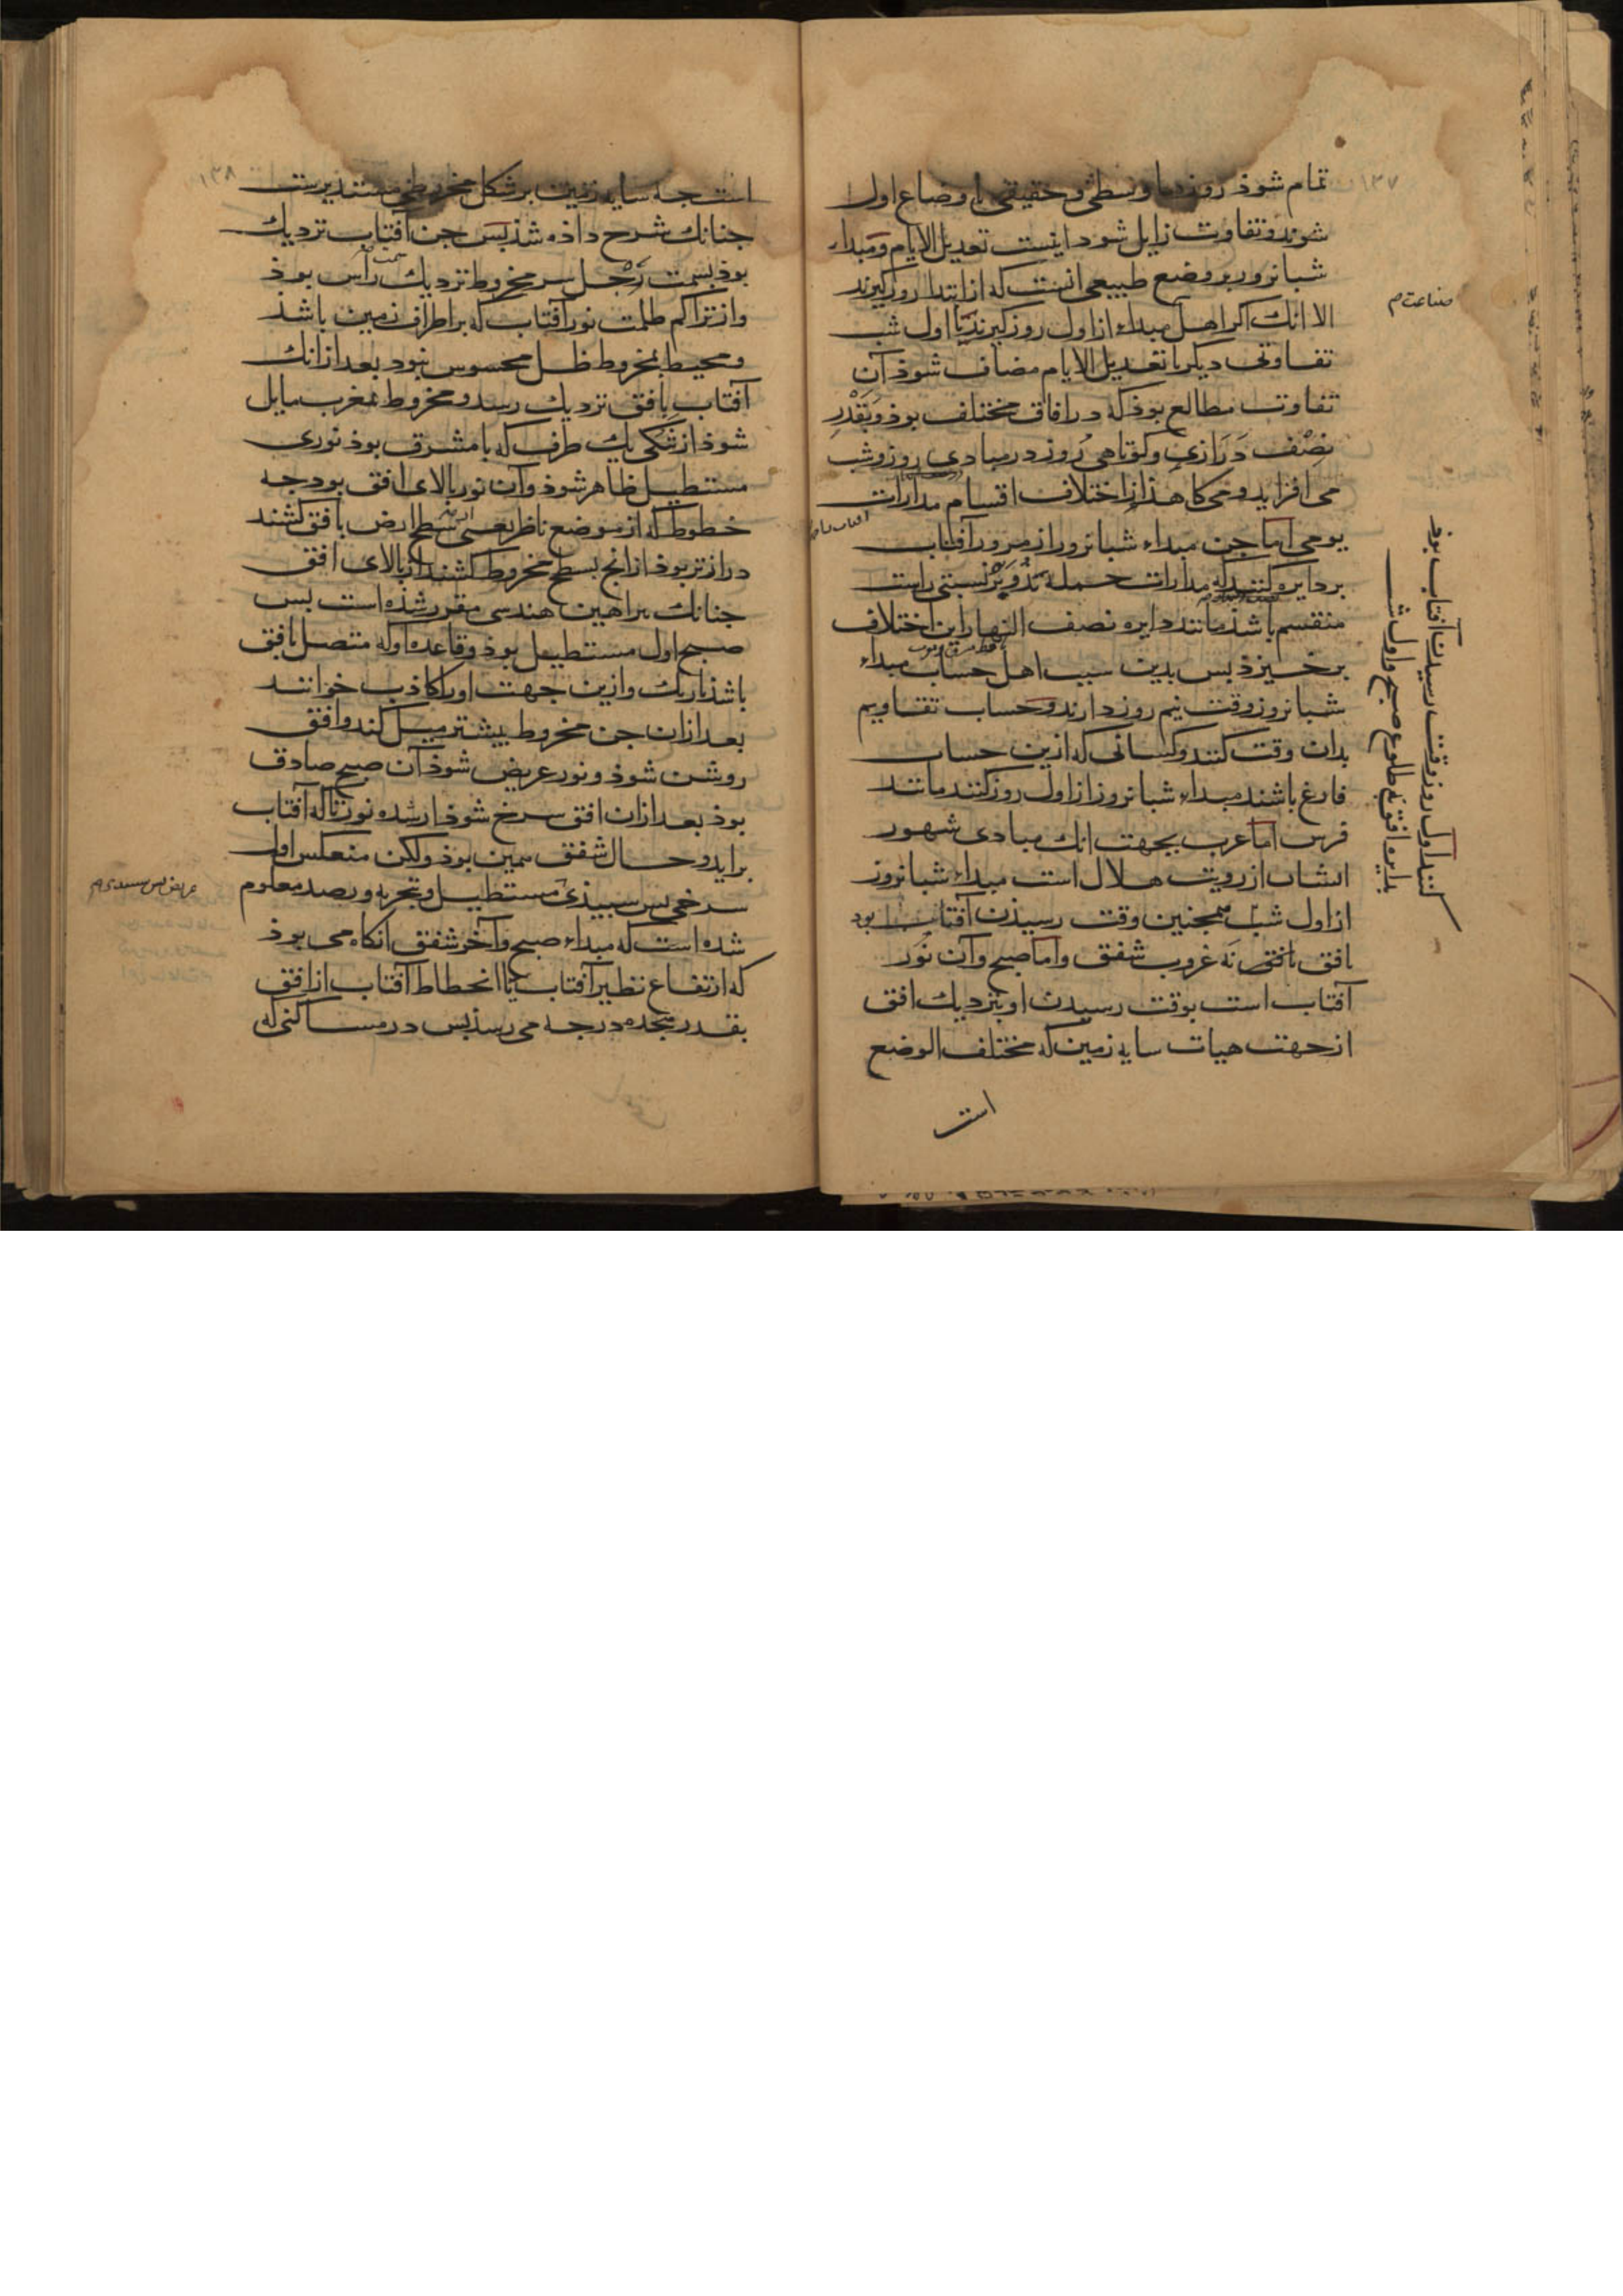 ۱۳۷
تمام شوذ روزها وسطی و حقیقی با وضاع اول
شوند و تفاوت زایل شود اینست تعدیل الایام و مبداء
شبانروز بر وضع طبیعی انست که از ابتدا روز کیرند
الا انك اکر اهل مبداء از اول روز کیرند یا اول شب
صناعت م
تفاوتی دیکر با تعدیل الایام مضاف شوذ آن
تفاوت مطالع بوذ که در افاق مختلف بوذ و بَقْدْرِ
نِصْف دَرَازی و کوتاهی روز در مبادی روز و شب
می افزاید و می کاهذ از اختلاف اقسام مدارات
یومی اما جن مبداء شبانروز از مرور آفتاب
بر دایره کنند که مدارات جمله بذو بر نسبتی راست
منقسم باشذ مانند دایره نصف النهار این اختلاف
بر خیزذ بس بدین سبب اهل حساب مبداء
شبانروز وقت نیم روز دارند و حساب تقاویم
بدان وقت کنند و کسانی که ازین حساب
فارغ باشند مبداء شبانروز از اول روز کنند مانند
فرس اما عرب بجهت انك مبادی شهور
ایشان از رویت هلال است مبداء شبانروز
از اول شب
کنند اول روز وقت رسیدن آفتاب بوذ
بدایره افق نه طلوع صبح و اول شب
همجنین وقت رسیذن آفتاب بود
بافق نه غروب شفق و اما صبح و آن نور
آفتاب است بوقت رسیدن او بنزدیك افق
از جهت هیات سایه زمین که مختلف الوضع
است
۱۳۸
است جه سایه زمین بر شکل مخروطی مستدیرست
جنانك شرح داذه شذ بس جن آفتاب نزدیك
بوذ بسمت رجل سر مخروط نزدیك سمت رأس بوذ
و از تراکم ظلمت نور آفتاب که بر اطراف زمین باشذ
و محیط بمخروط ظل محسوس نبود بعد از انك
آفتاب بافق نزدیك رسد و مخروط بمغرب مایل
شوذ از تنکی یك طرف که با مشرق بوذ نوری
مستطیل ظاهر شوذ و آن نور بالای افق بود جه
خطوط که از موضع ناظر یعنی سطح ارض بافق کشند
درازتر بوذ از انج بسطح مخروط کشند از بالای افق
جنانك براهین هندسی مقرر شذه است بس
صبح اول مستطیل بوذ و قاعده او که متصل بافق
باشذ تاریك و ازین جهت اورا کاذب خوانند
بعد ازان جن مخروط بیشتر میل کند و افق
روشن شوذ و نور عریض شوذ آن صبح صادق
بوذ بعد ازان افق سرخ شوذ تا که آفتاب
براید و حال شفق همین بوذ ولکن منعکس اول
سرخی بس سبیذی مستطیل و تجربه و رصد معلوم
عریض بس سبیدی م
شده است که مبداء صبح و آخر شفق انکاه می بوذ
که ارتفاع نظیر آفتاب یا انحطاط آفتاب از افق
بقدر هجده درجه می رسذ بس در مساکنی که